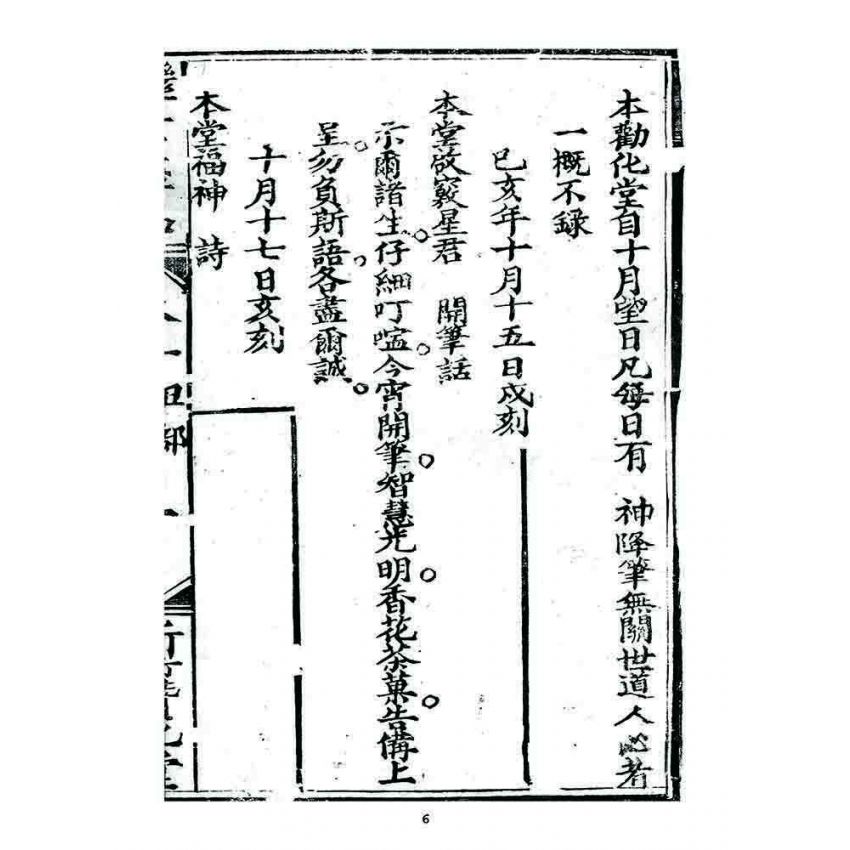 本勸化堂自十月望日凡每日有　神降筆無關世道人心者
一概不錄
己亥年十月十五日戌刻
本堂啟竅星君　開筆話
示爾諸生。仔細叮嚀。今宵開筆。智慧光明。香花茶菓。告備上
呈。勿負斯語。各盡爾誠。
十月十七日亥刻
本堂福神　詩
6